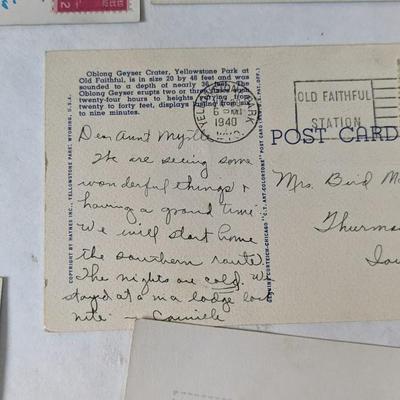 Oblong Geyser Crater, Yellowstone Park at
Old Faithful, is in size 20 by 48 feet and was
sounded to a depth of nearly 36 feet. The
Oblong Geyser erupts two or three times each
twenty-four hours to heights varying from
twenty to forty feet, displays lasting from six
to nine minutes.
YELLOWSTONE PARK
6 PM
1940
WYO.
OLD FAITHFUL
STATION
POST CARD
Dear Aunt Myrtle
We are seeing some
wonderful things &
having a grand time.
We will start home
the southern route.
The nights are cold. We
stayed at a lodge last
nite. — Camille
Mrs. Bird
Thurman
Iow
COPYRIGHT BY HAYNES INC., YELLOWSTONE PARK, WYOMING, U.S.A.
GENUINE CURTEICH-CHICAGO "C.T. ART-COLORTONE" POST CARD (REG. U.S. PAT. OFF.)
2